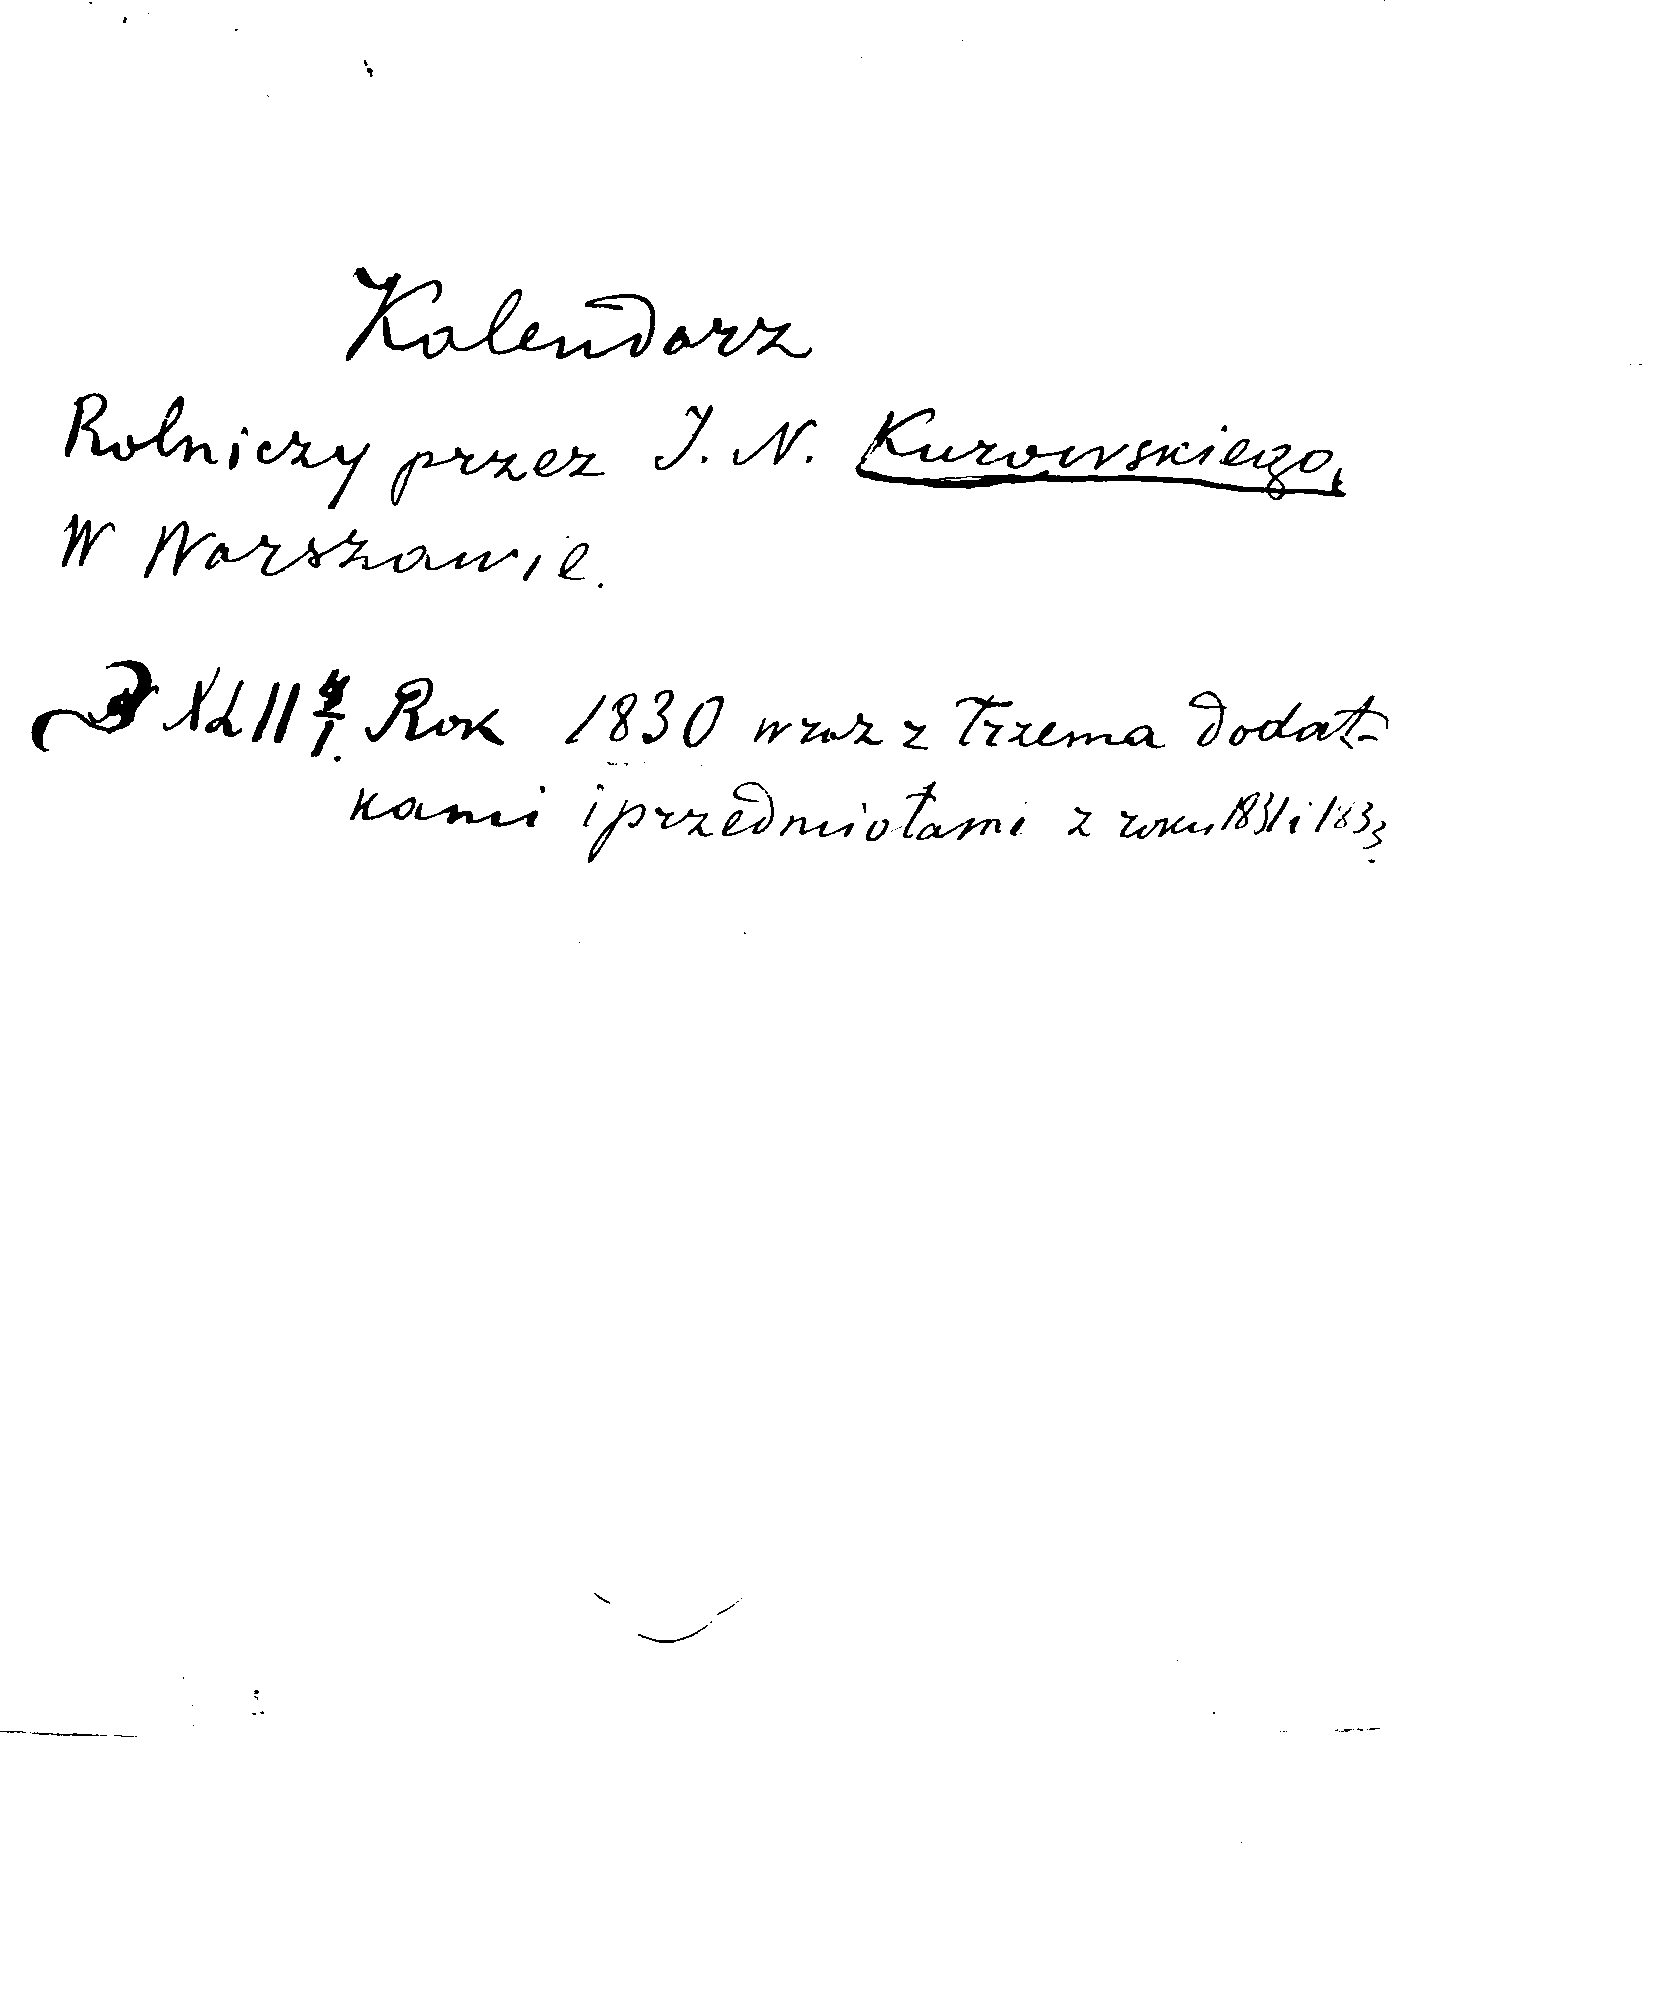 Kalendarz
Rolniczy przez J. N. Kurowskiego,
W Warszawie.
XLII Rok 1830 wraz z trzema dodat-
kami i przedmiotami z roku 1831 i 1833